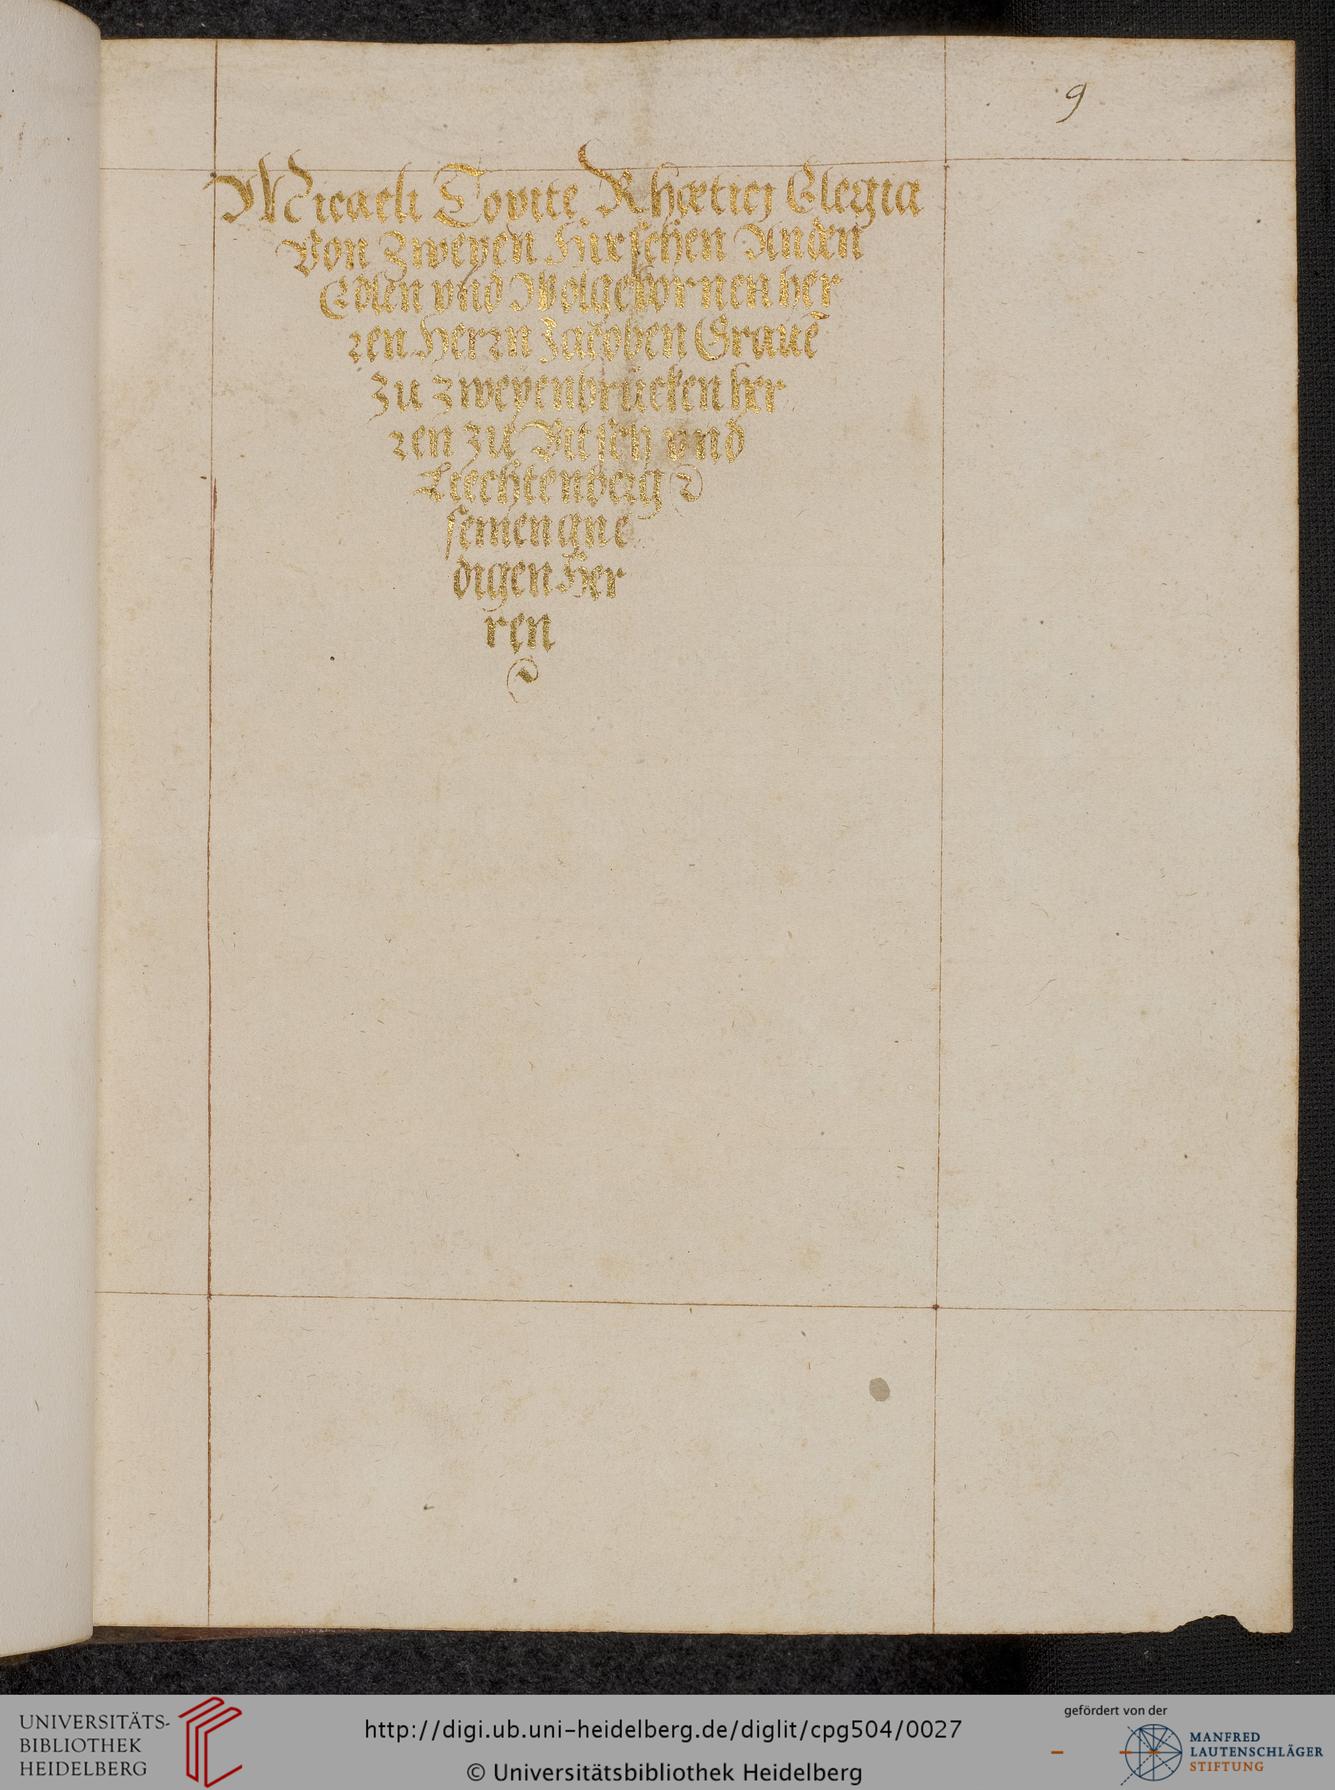 9
Micaeli Toxite Rhœticj Elegia
Von Zweyen Hirschen An den
Edlen vnd Wolgebornen her
ren Herrn Jacoben Grauē
zu zweyenbrücken her
ren zu Bitsch vnd
Liechtenberg
seinen gne
digen Her
ren
UNIVERSITÄTS-
BIBLIOTHEK
HEIDELBERG
http://digi.ub.uni-heidelberg.de/diglit/cpg504/0027
© Universitätsbibliothek Heidelberg
gefördert von der
MANFRED
LAUTENSCHLÄGER
STIFTUNG